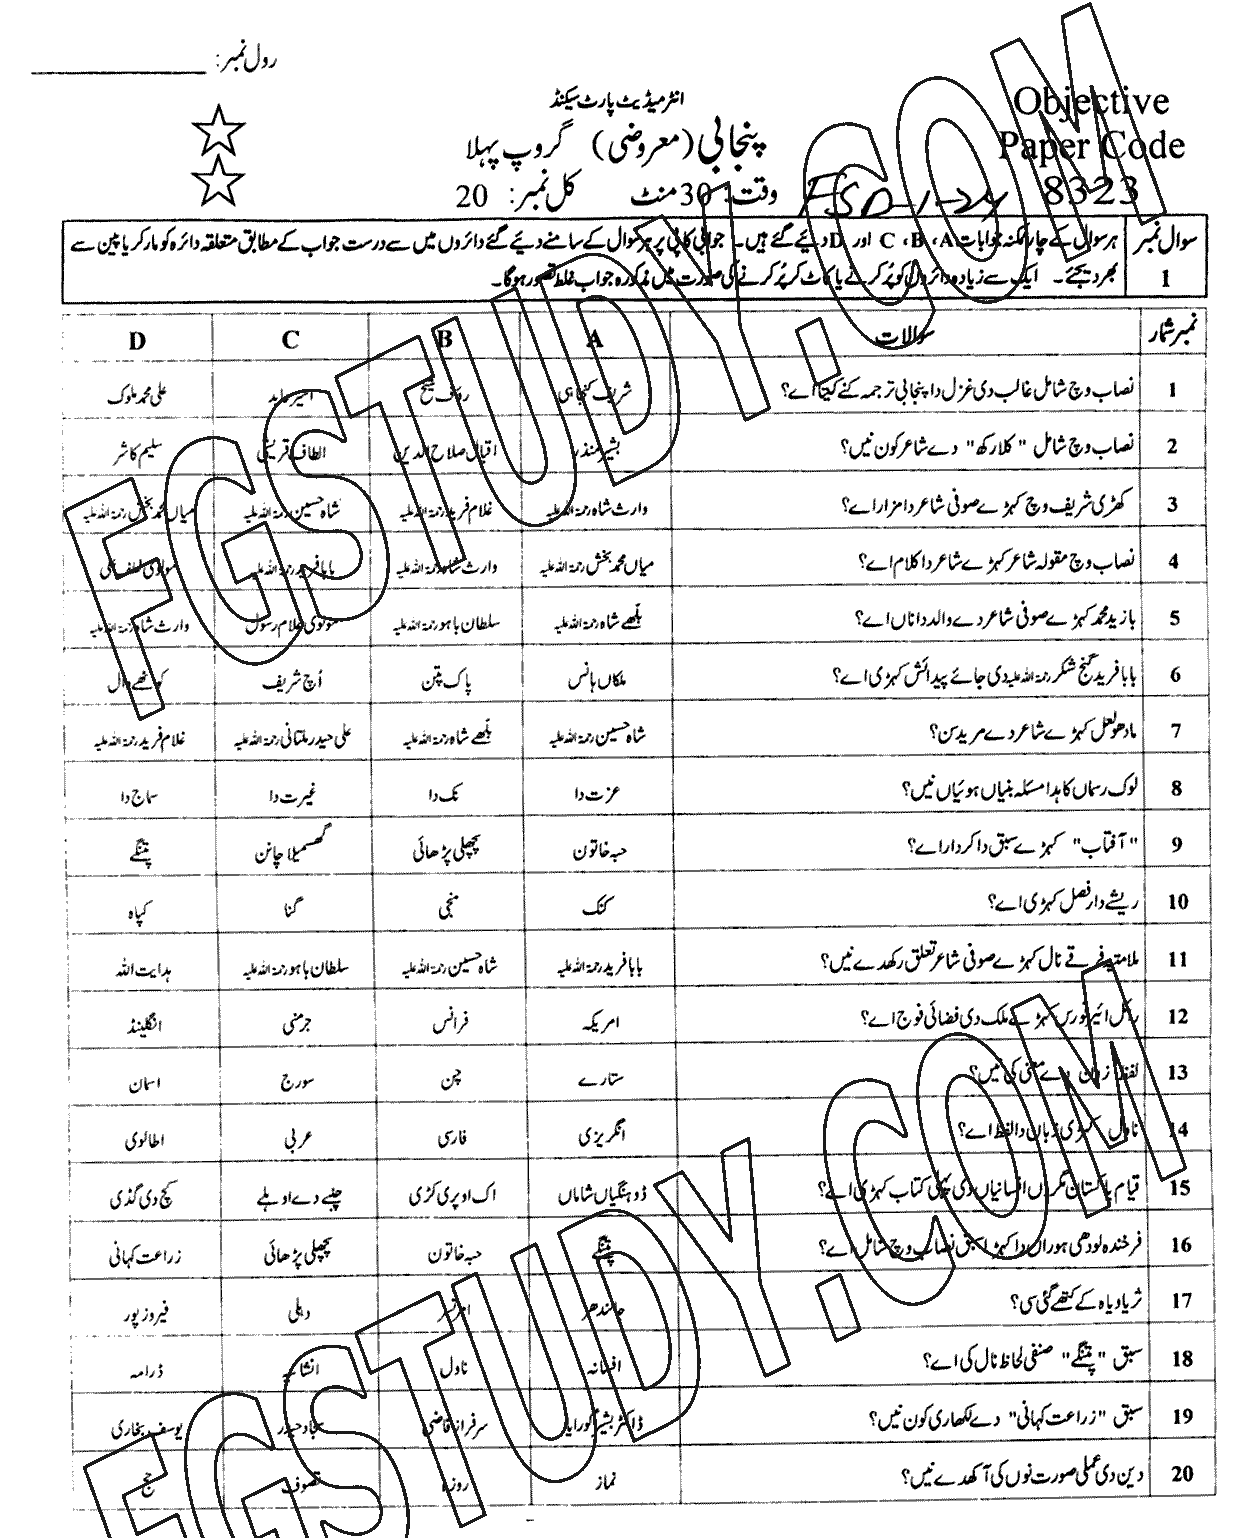 رول نمبر: ________
انٹرمیڈیٹ پارٹ سیکنڈ
Objective
پنجابی (معروضی) گروپ پہلا
Paper Code
وقت: 30 منٹ کل نمبر: 20
8323
FSD-1-24
سوال نمبر 1
ہر سوال کے چار ممکنہ جوابات A، B، C اور D دیئے گئے ہیں۔ جوابی کاپی پر ہر سوال کے سامنے دیئے گئے دائروں میں سے درست جواب کے مطابق متعلقہ دائرہ کو مارکر یا پین سے
بھر دیجئے۔ ایک سے زیادہ دائروں کو پُر کرنے یا کاٹ کر پُر کرنے کی صورت میں مذکورہ جواب غلط تصور ہوگا۔
نمبر شمار سوالات A B C D
1 نصاب وچ شامل غالب دی غزل دا پنجابی ترجمہ کنے کیتا اے؟ شریف کنجاہی رؤف شیخ اسیر عابد علی محمد ملوک
2 نصاب وچ شامل "کلا رکھ" دے شاعر کون نیں؟ بشیر منذر اقبال صلاح الدین الطاف قریشی سلیم کاشر
3 کھڑی شریف وچ کہڑے صوفی شاعر دا مزار اے؟ وارث شاہ رحمۃ اللہ علیہ غلام فرید رحمۃ اللہ علیہ شاہ حسین رحمۃ اللہ علیہ میاں محمد بخش رحمۃ اللہ علیہ
4 نصاب وچ مقولہ شاعر کہڑے شاعر دا کلام اے؟ میاں محمد بخش رحمۃ اللہ علیہ وارث شاہ رحمۃ اللہ علیہ بابا فرید رحمۃ اللہ علیہ مولوی لطف علی
5 بازید محمد کہڑے صوفی شاعر دے والد دا ناں اے؟ بلھے شاہ رحمۃ اللہ علیہ سلطان باہو رحمۃ اللہ علیہ مولوی غلام رسول وارث شاہ رحمۃ اللہ علیہ
6 بابا فرید گنج شکر رحمۃ اللہ علیہ دی جائے پیدائش کہڑی اے؟ ملکاں ہانس پاک پتن اُچ شریف کوٹھے وال
7 مادھو لعل کہڑے شاعر دے مرید سن؟ شاہ حسین رحمۃ اللہ علیہ بلھے شاہ رحمۃ اللہ علیہ علی حیدر ملتانی رحمۃ اللہ علیہ غلام فرید رحمۃ اللہ علیہ
8 لوک رسماں کاہدا مسئلہ بنیاں ہوئیاں نیں؟ عزت دا نک دا غیرت دا سماج دا
9 "آفتاب" کہڑے سبق دا کردار اے؟ حبہ خاتون پچھلی پڑھائی گھسمیلا چانن پتنگے
10 ریشے دار فصل کہڑی اے؟ کنک منجی گنا کپاہ
11 ملامتیہ فرقے نال کہڑے صوفی شاعر تعلق رکھدے نیں؟ بابا فرید رحمۃ اللہ علیہ شاہ حسین رحمۃ اللہ علیہ سلطان باہو رحمۃ اللہ علیہ ہدایت اللہ
12 رائل ائیر فورس کہڑے ملک دی فضائی فوج اے؟ امریکہ فرانس جرمنی انگلینڈ
13 لفظ دے معنی کی نیں؟ ستارے چن سورج اسمان
14 ناول کہڑی زبان دا لفظ اے؟ انگریزی فارسی عربی اطالوی
15 قیام پاکستان مگروں افسانیاں دی پہلی کتاب کہڑی اے؟ ڈوہنگیاں شاماں اک اوپری کڑی چنبے دے اوہلے کچ دی گڈی
16 فرخندہ لودھی ہوراں دا کہڑا سبق نصاب وچ شامل اے؟ پتنگے حبہ خاتون پچھلی پڑھائی زراعت کہانی
17 ثریا ویاہ کے کتھے گئی سی؟ جالندھر امرتسر دہلی فیروز پور
18 سبق "پتنگے" صنفی لحاظ نال کی اے؟ افسانہ ناول انشائیہ ڈرامہ
19 سبق "زراعت کہانی" دے لکھاری کون نیں؟ ڈاکٹر بشیر گورایہ سرفراز قاضی سجاد حیدر یوسف بخاری
20 دین دی عملی صورت نوں کی آکھدے نیں؟ نماز روزہ تصوف حج
FGSTUDY.COM
FGSTUDY.COM